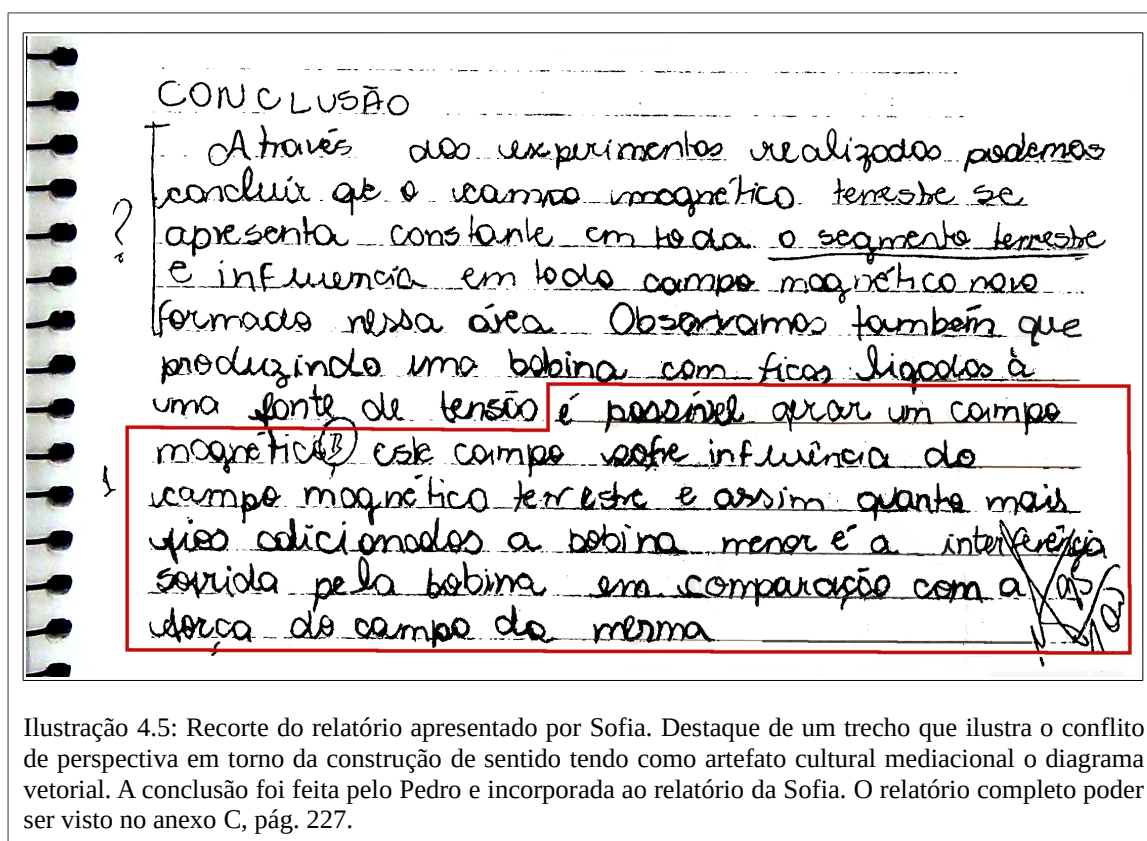 CONCLUSÃO
Através dos experimentos realizados podemos
concluir qe o campo magnético terreste se
? apresenta constante em toda o segmento terrestre
e influencia em todo campo magnético novo
formado nessa área Observamos também que
produzindo uma bobina com fios ligados à
uma fonte de tensão é possível gerar um campo
magnético B este campo sofre influência do
1 campo magnético terrestre e assim quanto mais
fios adicionados a bobina menor é a interferência
sofrida pela bobina em comparação com a
força do campo da mesma
Ilustração 4.5: Recorte do relatório apresentado por Sofia. Destaque de um trecho que ilustra o conflito
de perspectiva em torno da construção de sentido tendo como artefato cultural mediacional o diagrama
vetorial. A conclusão foi feita pelo Pedro e incorporada ao relatório da Sofia. O relatório completo poder
ser visto no anexo C, pág. 227.